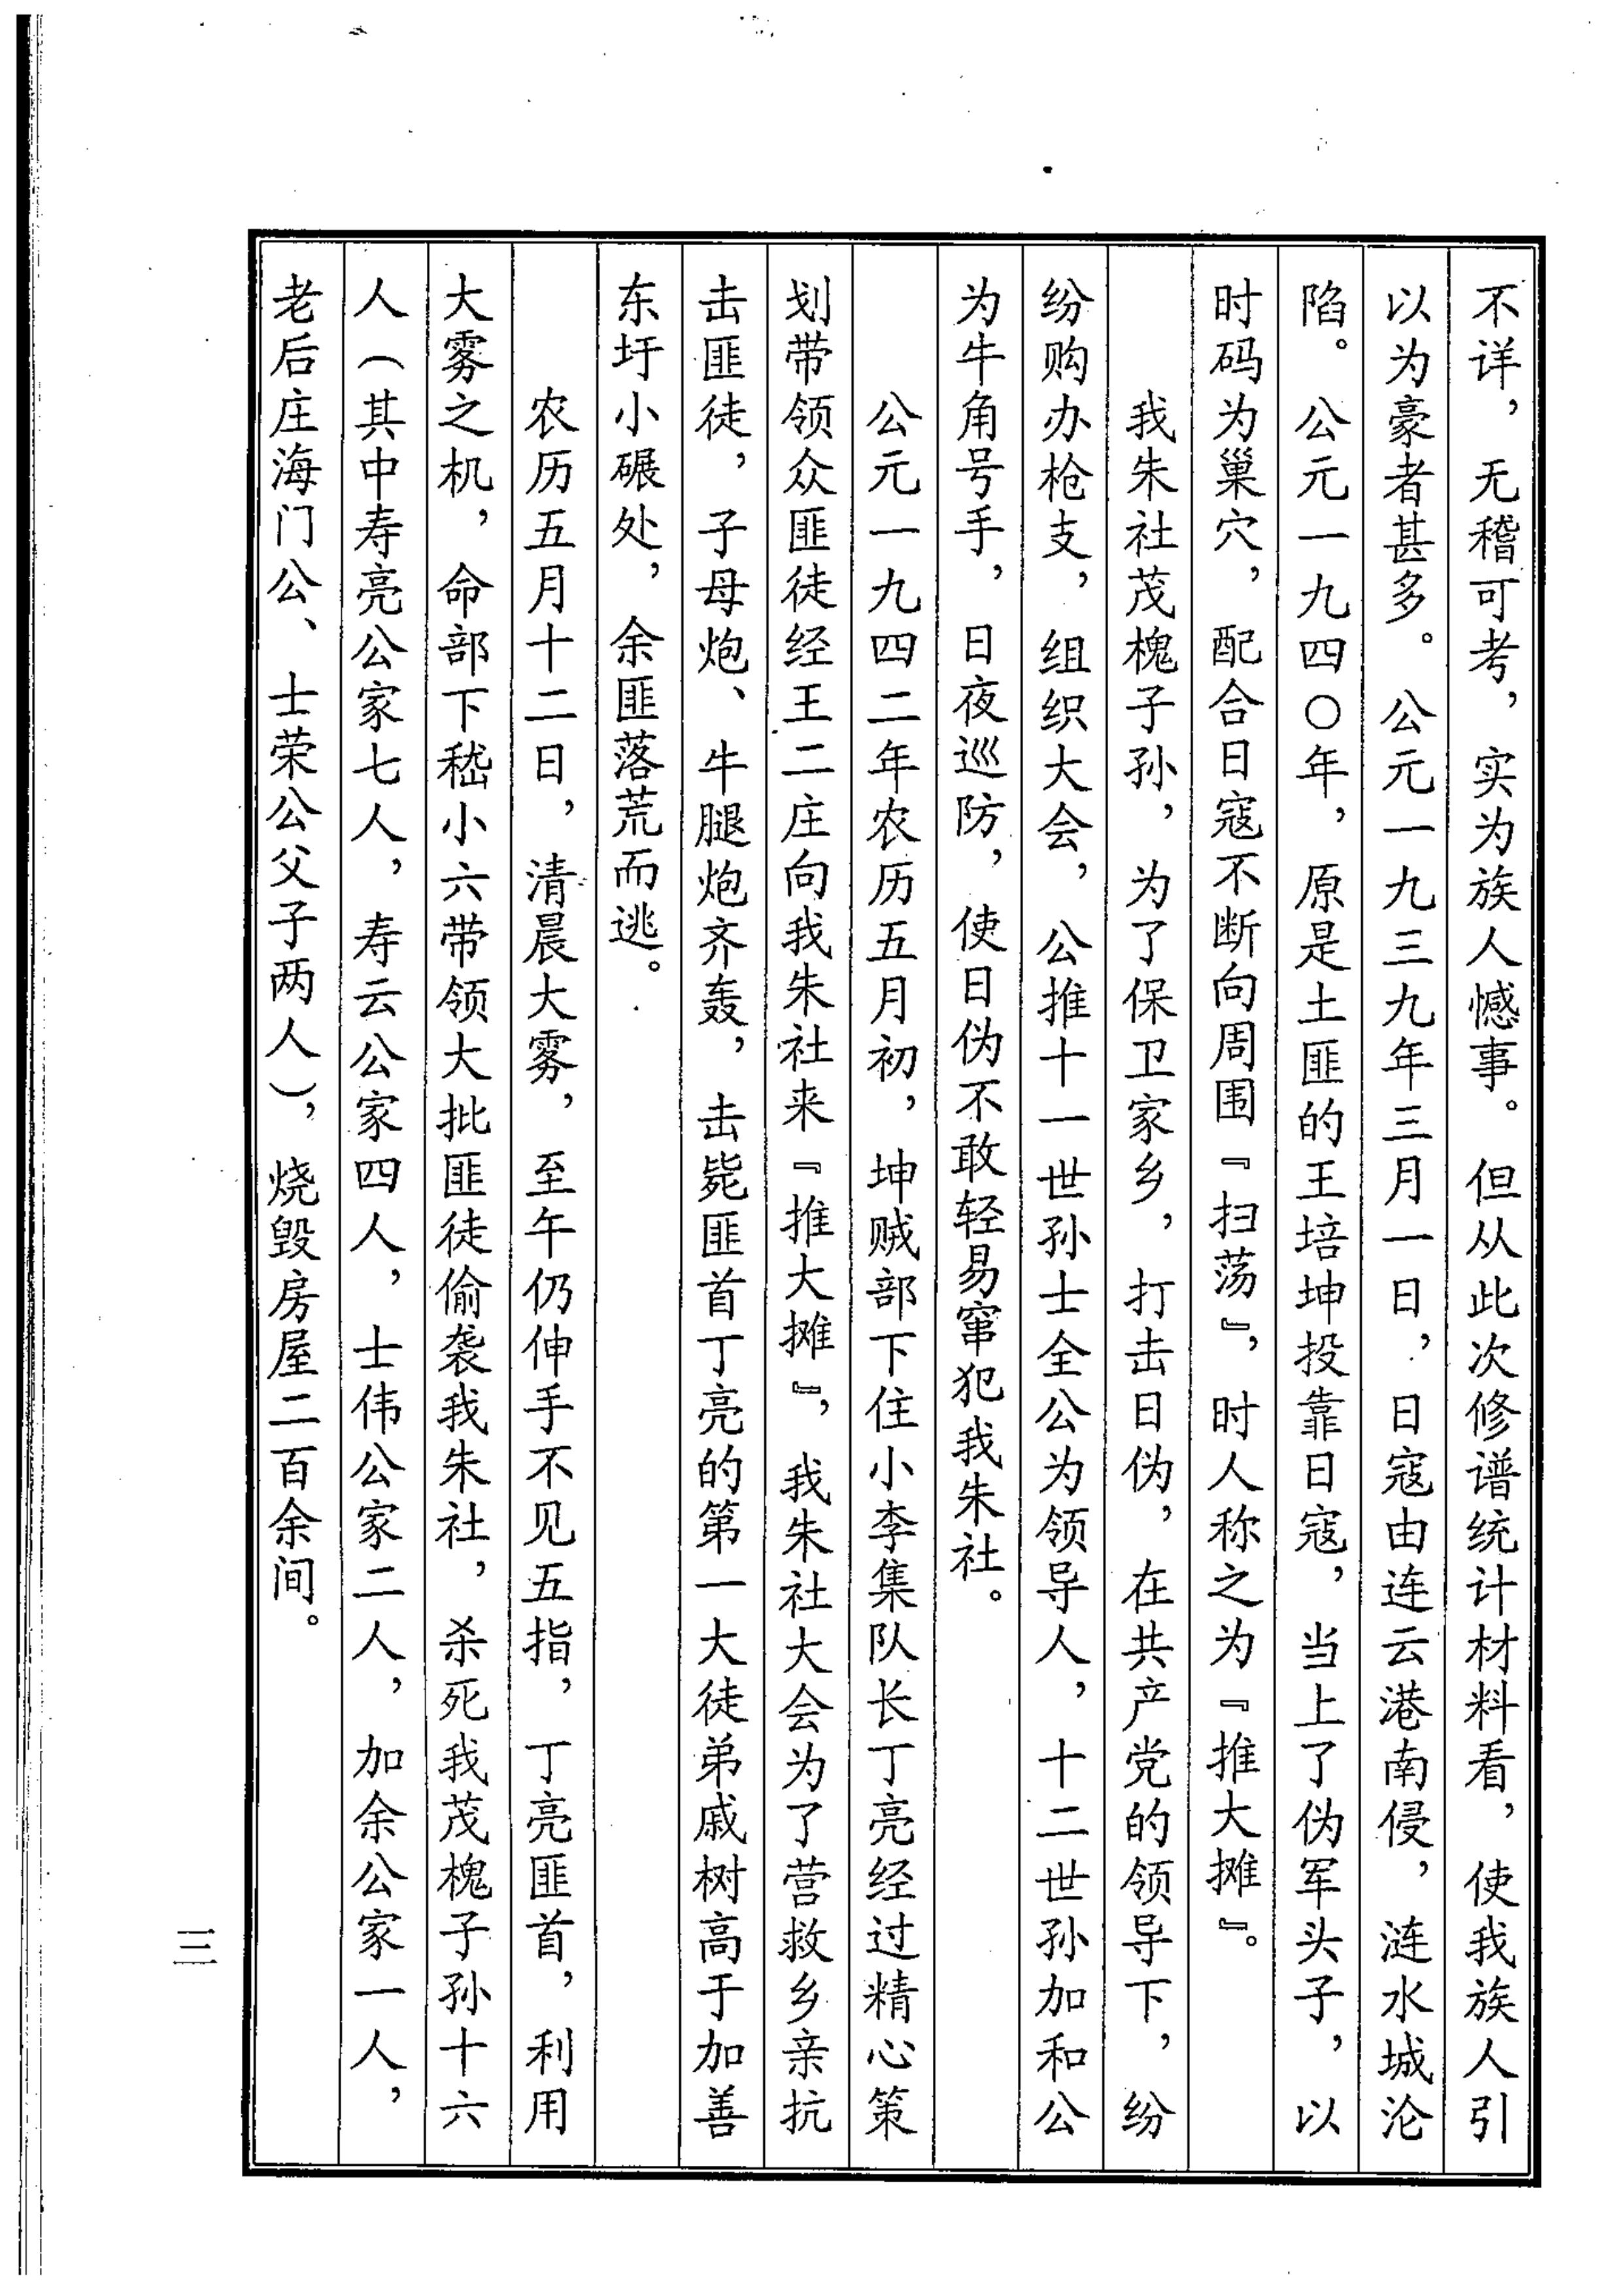 不详，无稽可考，实为族人憾事。但从此次修谱统计材料看，使我族人引
以为豪者甚多。公元一九三九年三月一日，日寇由连云港南侵，涟水城沦
陷。公元一九四〇年，原是土匪的王培坤投靠日寇，当上了伪军头子，以
时码为巢穴，配合日寇不断向周围『扫荡』，时人称之为『推大摊』。
我朱社茂槐子孙，为了保卫家乡，打击日伪，在共产党的领导下，纷
纷购办枪支，组织大会，公推十一世孙士全公为领导人，十二世孙加和公
为牛角号手，日夜巡防，使日伪不敢轻易窜犯我朱社。
公元一九四二年农历五月初，坤贼部下住小李集队长丁亮经过精心策
划带领众匪徒经王二庄向我朱社来『推大摊』，我朱社大会为了营救乡亲抗
击匪徒，子母炮、牛腿炮齐轰，击毙匪首丁亮的第一大徒弟戚树高于加善
东圩小碾处，余匪落荒而逃。
农历五月十二日，清晨大雾，至午仍伸手不见五指，丁亮匪首，利用
大雾之机，命部下嵇小六带领大批匪徒偷袭我朱社，杀死我茂槐子孙十六
人（其中寿亮公家七人，寿云公家四人，士伟公家二人，加余公家一人，
老后庄海门公、士荣公父子两人），烧毁房屋二百余间。
三